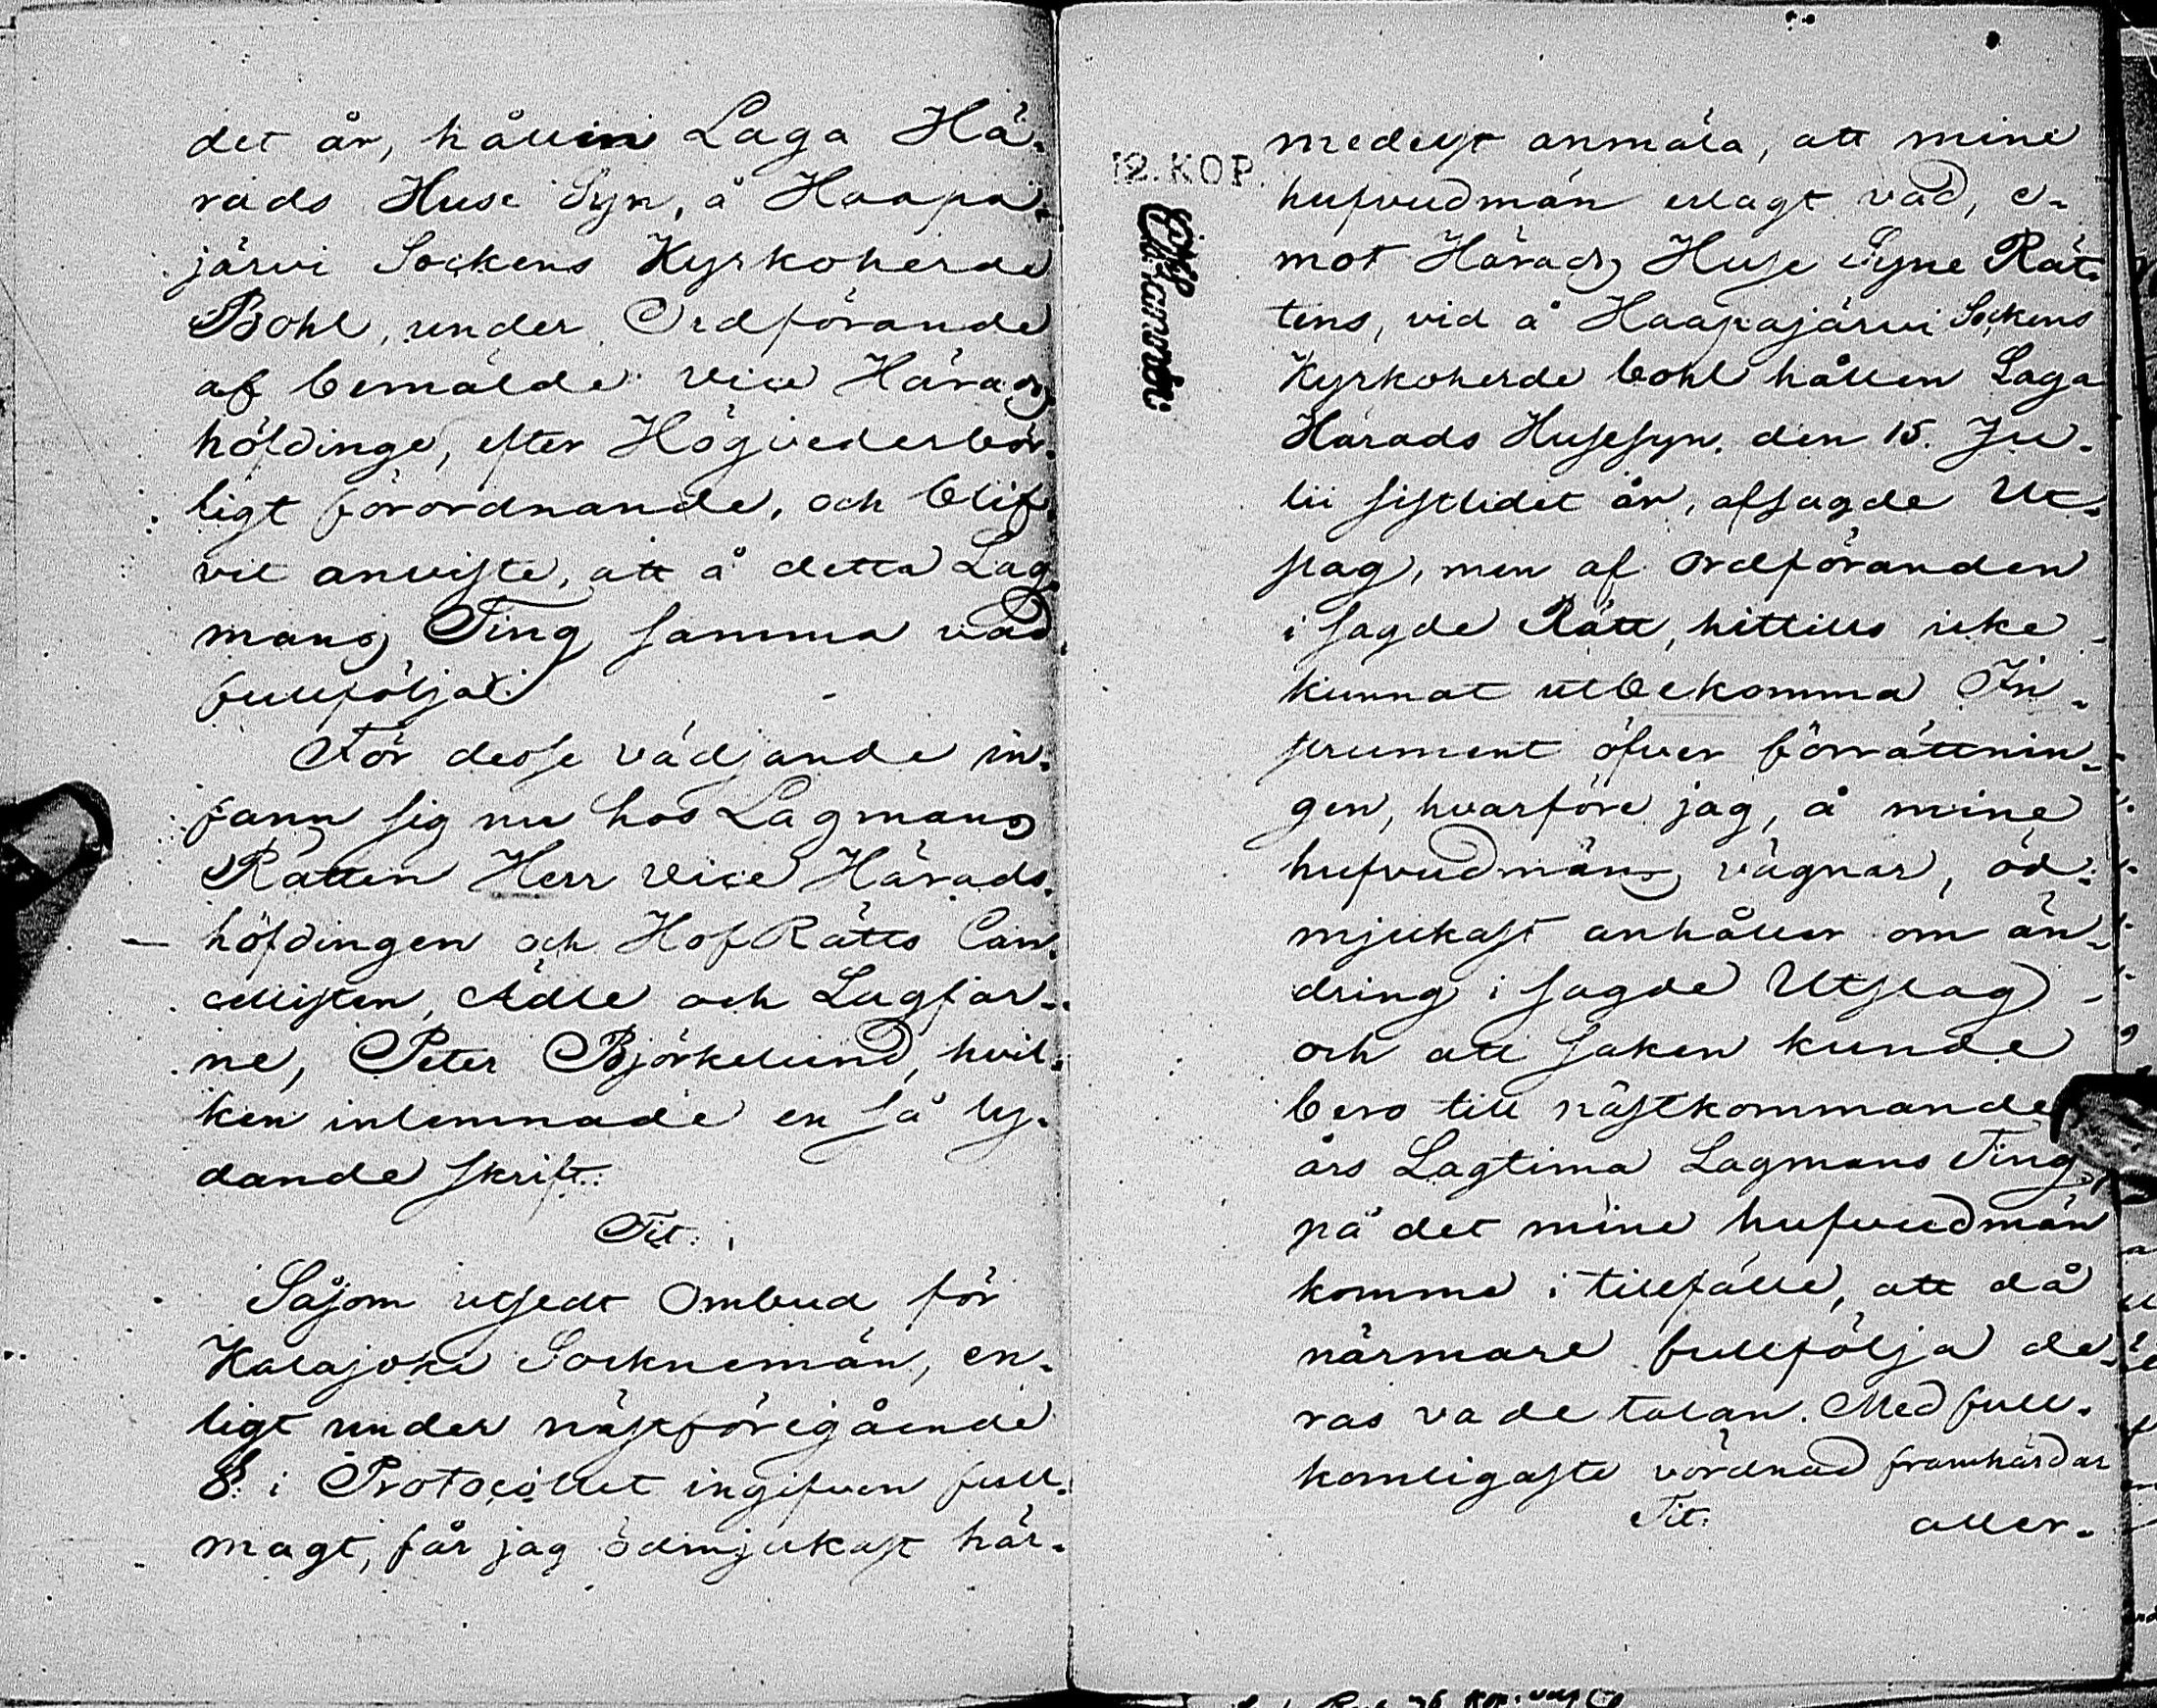 det år, hållin Laga Hä-
rads Huse Syn, å Haapa-
järvi Sockens Kyrkoherde
Bohl, under Ordförande
af bemälde vice Härads
höfdinge, efter Högvederbör-
ligt förordnande, och blif-
vit anviste, att å detta Lag-
mans Ting samma vad
fullfölja.
För desse vädjande in-
fann sig nu hos Lagmans
Rätten Herr Vice Härads-
höfdingen och HofRätts Can-
cellisten, Ädle och Lagfar-
ne, Peter Björkelund, hvil-
ken inlemnade en så ly-
dande skrift:
Tit:
Såsom utsedt Ombud för
Kalajoki Socknemän, en-
ligt under näst föregående
§: i Protocollet ingifven full-
magt, får jag ödmjukast här-
12. KOP.
medelst anmäla, att mine
hufvudmän erlagt vad, e-
mot Härads Huse Syne Rät-
tens, vid å Haapajärvi Sockens
Kyrkoherde bohl hållen Laga
Härads Husesyn, den 15. Ju-
lii sistlidet år, afsagde Ut-
slag, men af ordföranden
i sagde Rätt, hittills icke
kunnat utbekomma In-
strument öfver förrättnin-
gen, hvarföre jag, å mine
hufvudmäns vägnar, öd-
mjukast anhåller om än-
dring i sagde Utslag
och att saken kunde
bero till nästkommande
års Lagtima Lagmans Ting,
på det mine hufvudmän
komme i tillfälle, att då
närmare fullfölja de-
ras vade talan. Med full-
komligaste vördnad framhärdar
Tit: aller-